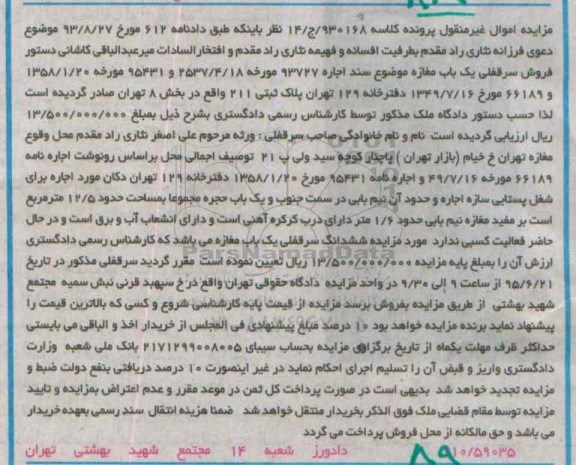 مزایده اموال غیرمنقول پرونده کلاسه ۹۳۰۱۶۸/ج/۱۴ نظر باینکه طبق دادنامه ۶۱۲ مورخ ۹۳/۸/۲۷ موضوع
دعوی فرزانه نثاری راد مقدم بطرفیت افسانه و فهیمه نثاری راد مقدم و افتخارالسادات میرعبدالباقی کاشانی دستور
فروش سرقفلی یک باب مغازه موضوع سند اجاره ۹۳۷۲۷ مورخه ۲۵۳۷/۴/۱۸ و ۹۵۴۳۱ مورخه ۱۳۵۸/۱/۲۰
و ۶۶۱۸۹ مورخ ۱۳۴۹/۷/۱۶ دفترخانه ۱۲۹ تهران پلاک ثبتی ۲۱۱ واقع در بخش ۸ تهران صادر گردیده است
لذا حسب دستور دادگاه ملک مذکور توسط کارشناس رسمی دادگستری بشرح ذیل بمبلغ ۱۳/۵۰۰/۰۰۰/۰۰۰
ریال ارزیابی گردیده است نام و نام خانوادگی صاحب سرقفلی : ورثه مرحوم علی اصغر نثاری راد مقدم محل وقوع
مغازه تهران خ خیام (بازار تهران ) پاچنار کوچه سید ولی پ ۲۱ توصیف اجمالی محل براساس رونوشت اجاره نامه
۶۶۱۸۹ مورخه ۴۹/۷/۱۶ و اجاره نامه ۹۵۴۳۱ مورخ ۱۳۵۸/۱/۲۰ دفترخانه ۱۲۹ تهران دکان مورد اجاره برای
شغل پستایی سازه اجاره و حدود آن نیم بابی در سمت جنوب و یک باب حجره مجموعا بمساحت حدود ۱۲/۵ مترمربع
است بر مفید مغازه نیم بابی حدود ۱/۶ متر دارای درب کرکره آهنی است و دارای انشعاب آب و برق است و در حال
حاضر فعالیت کسبی ندارد مورد مزایده ششدانگ سرقفلی یک باب مغازه می باشد که کارشناس رسمی دادگستری
ارزش آن را بمبلغ پایه مزایده ۱۳/۵۰۰/۰۰۰/۰۰۰ ریال تعیین نموده است مقرر گردید سرقفلی مذکور در تاریخ
۹۵/۶/۲۱ از ساعت ۹ الی ۹/۳۰ در واحد مزایده دادگاه حقوقی تهران واقع در خ سپهبد قرنی نبش سمیه مجتمع
شهید بهشتی از طریق مزایده بفروش برسد مزایده از قیمت پایه کارشناسی شروع و کسی که بالاترین قیمت را
پیشنهاد نماید برنده مزایده خواهد بود ۱۰ درصد مبلغ پیشنهادی فی المجلس از خریدار اخذ و الباقی می بایستی
حداکثر ظرف مهلت یکماه از تاریخ برگزاری مزایده بحساب سیبای ۲۱۷۱۲۹۹۰۰۸۰۰۵ بانک ملی شعبه وزارت
دادگستری واریز و قبض آن را تسلیم اجرای احکام نماید در غیر اینصورت ۱۰ درصد دریافتی بنفع دولت ضبط و
مزایده تجدید خواهد شد بدیهی است در صورت پرداخت کل ثمن در موعد مقرر و عدم اعتراض بمزایده و تایید
مزایده توسط مقام قضایی ملک فوق الذکر بخریدار منتقل خواهد شد ضمنا هزینه انتقال سند رسمی بعهده خریدار
می باشد و حق مالکانه از محل فروش پرداخت می گردد
۱۰/۵۹۰۳۵ دادورز شعبه ۱۴ مجتمع شهید بهشتی تهران